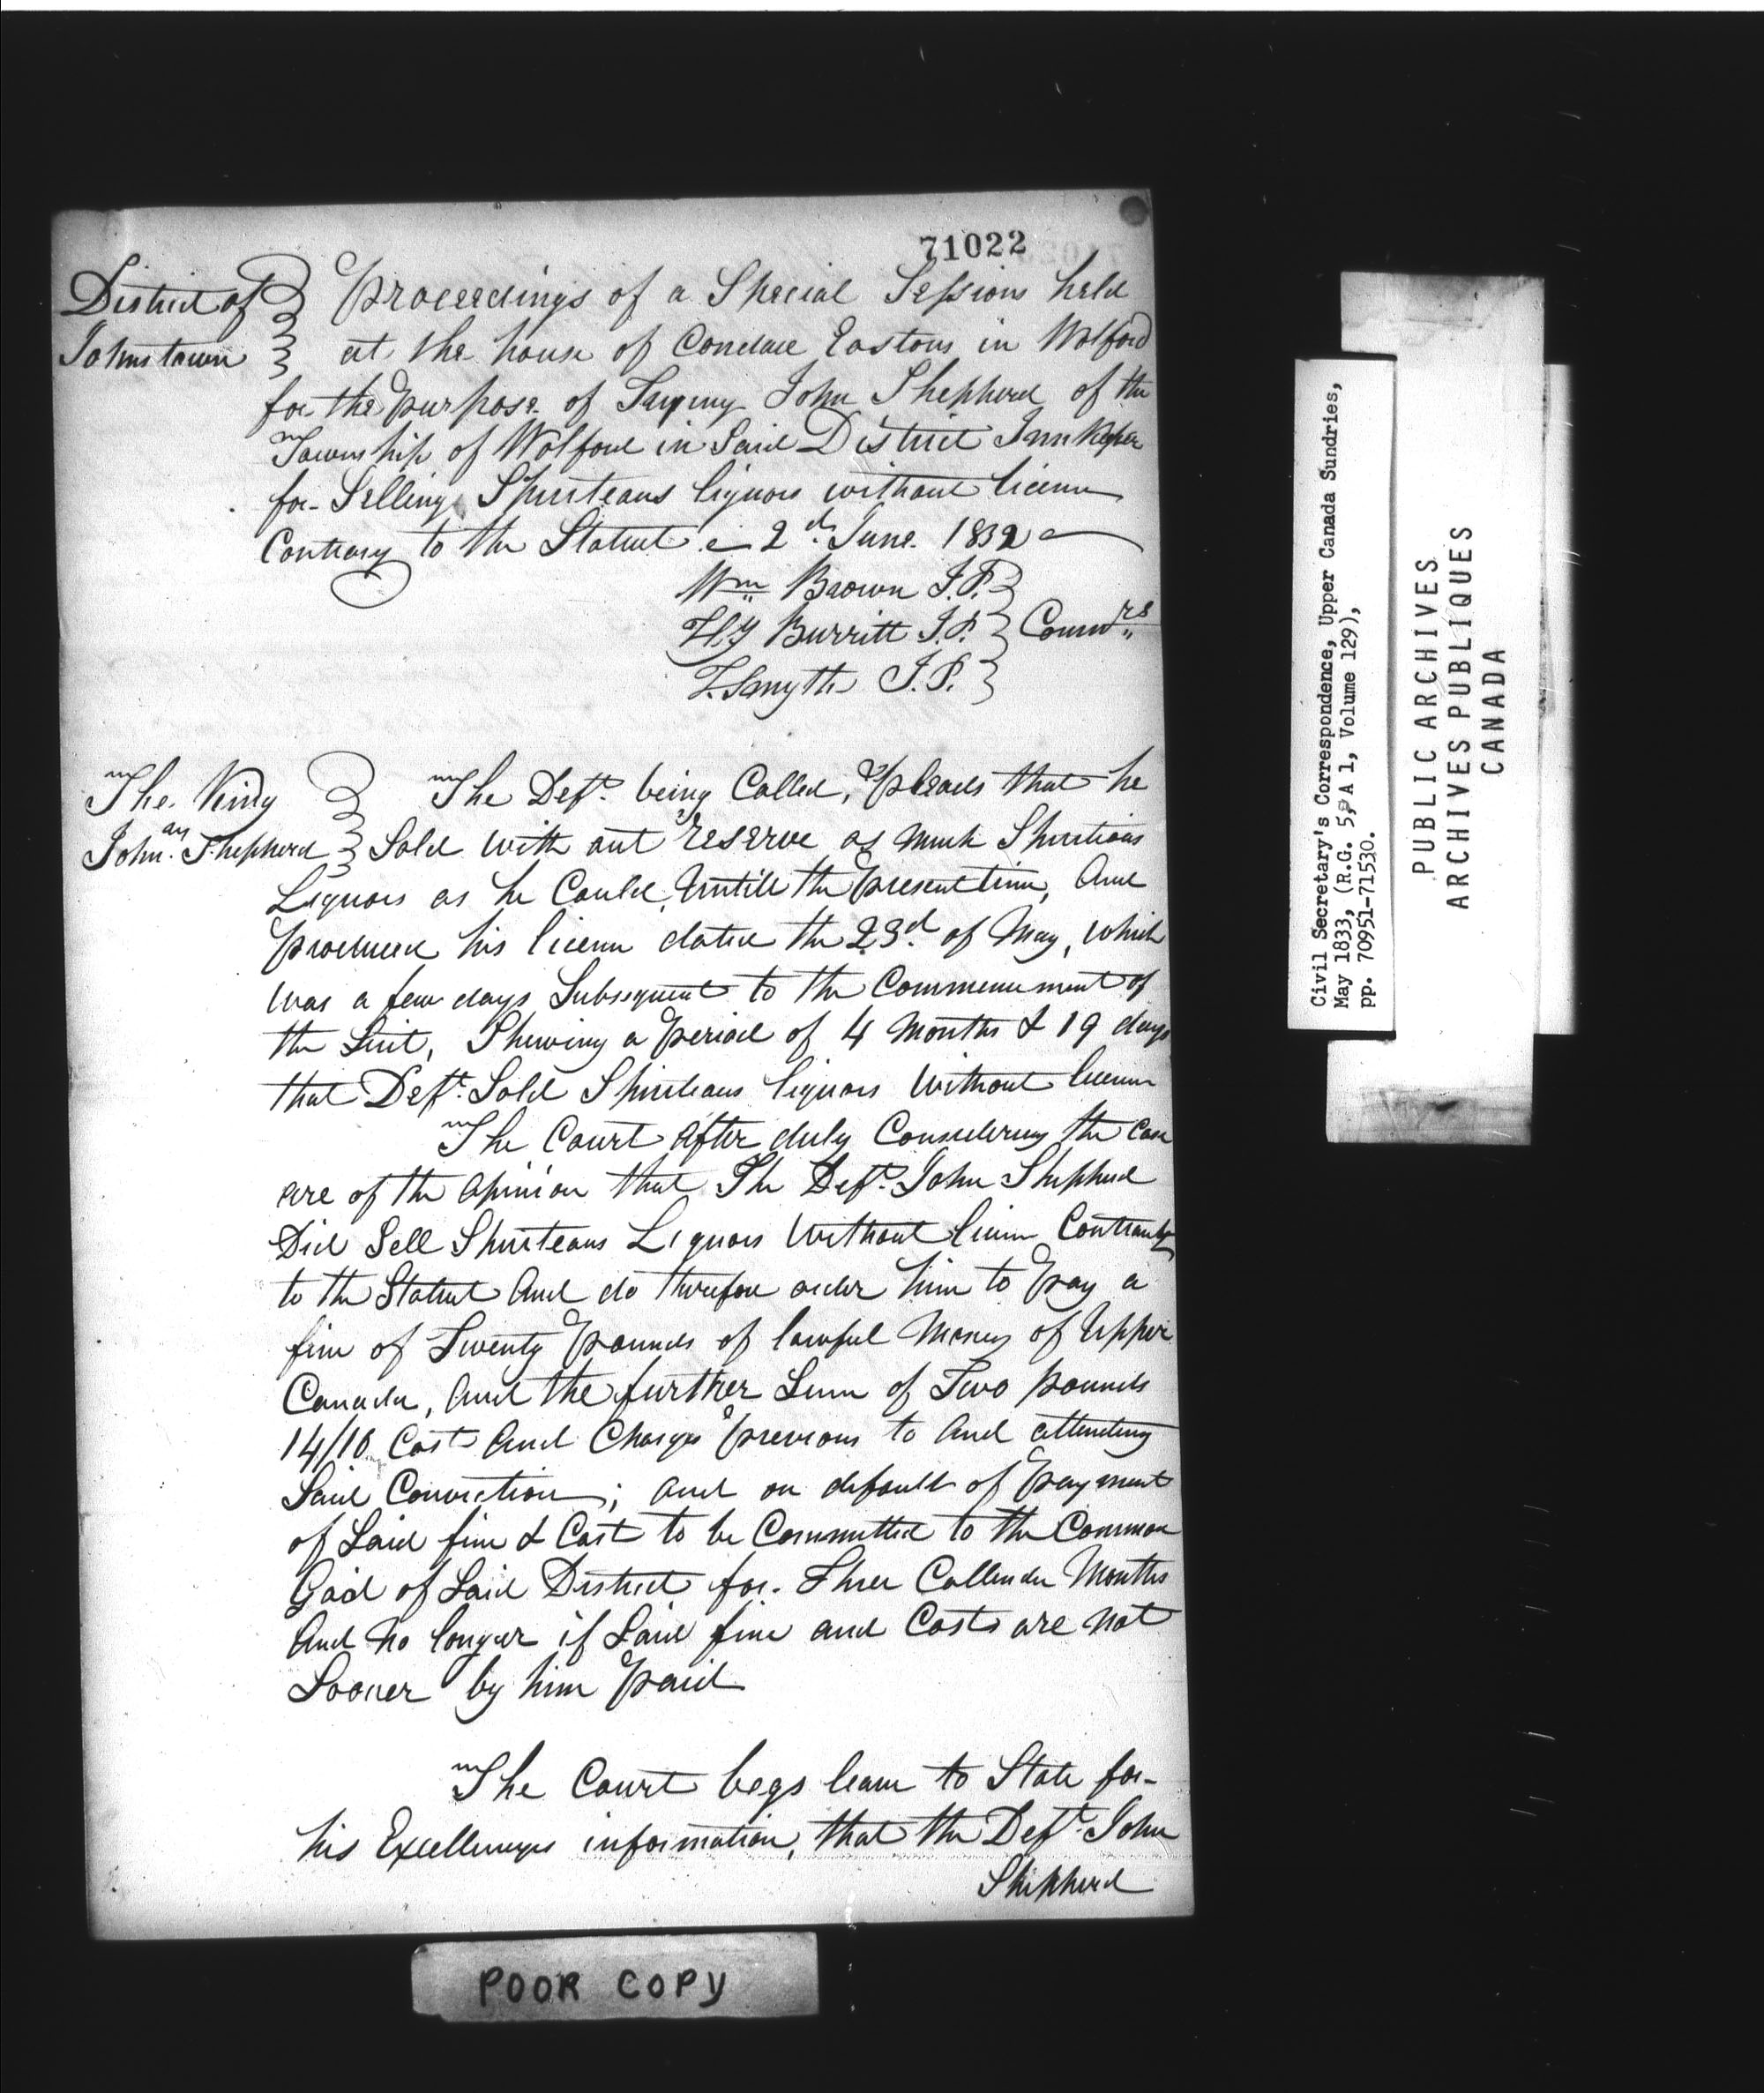 71022
District of } Proceedings of a Special Sessions held
Johnstown } at the house of Easton in Wolford
for the Purpose of Trying John Shepherd of the
Township of Wolford in Said District Inn Keeper
for Selling Spiriteous liquors without licence
Contrary to the Statute 2d June 1832
Wm Brown J.P. }
H Burritt J.P. } Commrs
T. Smyth J.P. }
The King } The Deft. being Called, Pleads that he
John Shepherd } Sold with out reserve as much Spiritious
Liquors as he Could, Untill the Present time, And
Produced his licence dated the 23d of May, which
was a few days Subsequent to the Commencement of
the Suit, Shewing a Period of 4 Months & 19 days
that Deft. Sold Spiriteous liquors Without licence
The Court After duly Considering the Case
are of the Opinion that The Deft. John Shepherd
Did Sell Spiriteous Liquors Without licence Contrary
to the Statute And do therefore order him to Pay a
fine of Twenty Pounds of lawful Money of Upper
Canada, And the further Sum of Two Pounds
14/10 Cost And Charges Previous to And attending
Said Conviction; and on default of Payment
of Said fine & Cost to be Committed to the Common
Gaol of Said District for Three Callender Months
And No longer if Said fine and Costs are Not
Sooner by him Paid
The Court begs leave to State for
his Excellencys information, that the Deft. John
Shepherd
POOR COPY
Civil Secretary's Correspondence, Upper Canada Sundries,
May 1833, (R.G. 5, A 1, Volume 129),
pp. 70951-71530.
PUBLIC ARCHIVES
ARCHIVES PUBLIQUES
CANADA